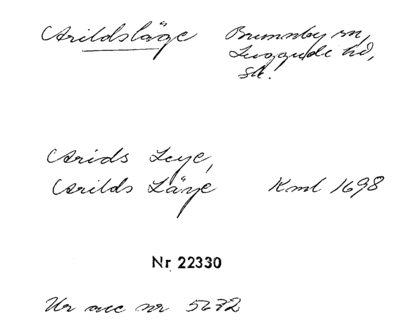 Arildsläge Brunnby sn,
Luggude hd,
Sk.
Arids Leye,
Arilds Läye Kml 1698
Nr 22330
Ur acc nr 5672